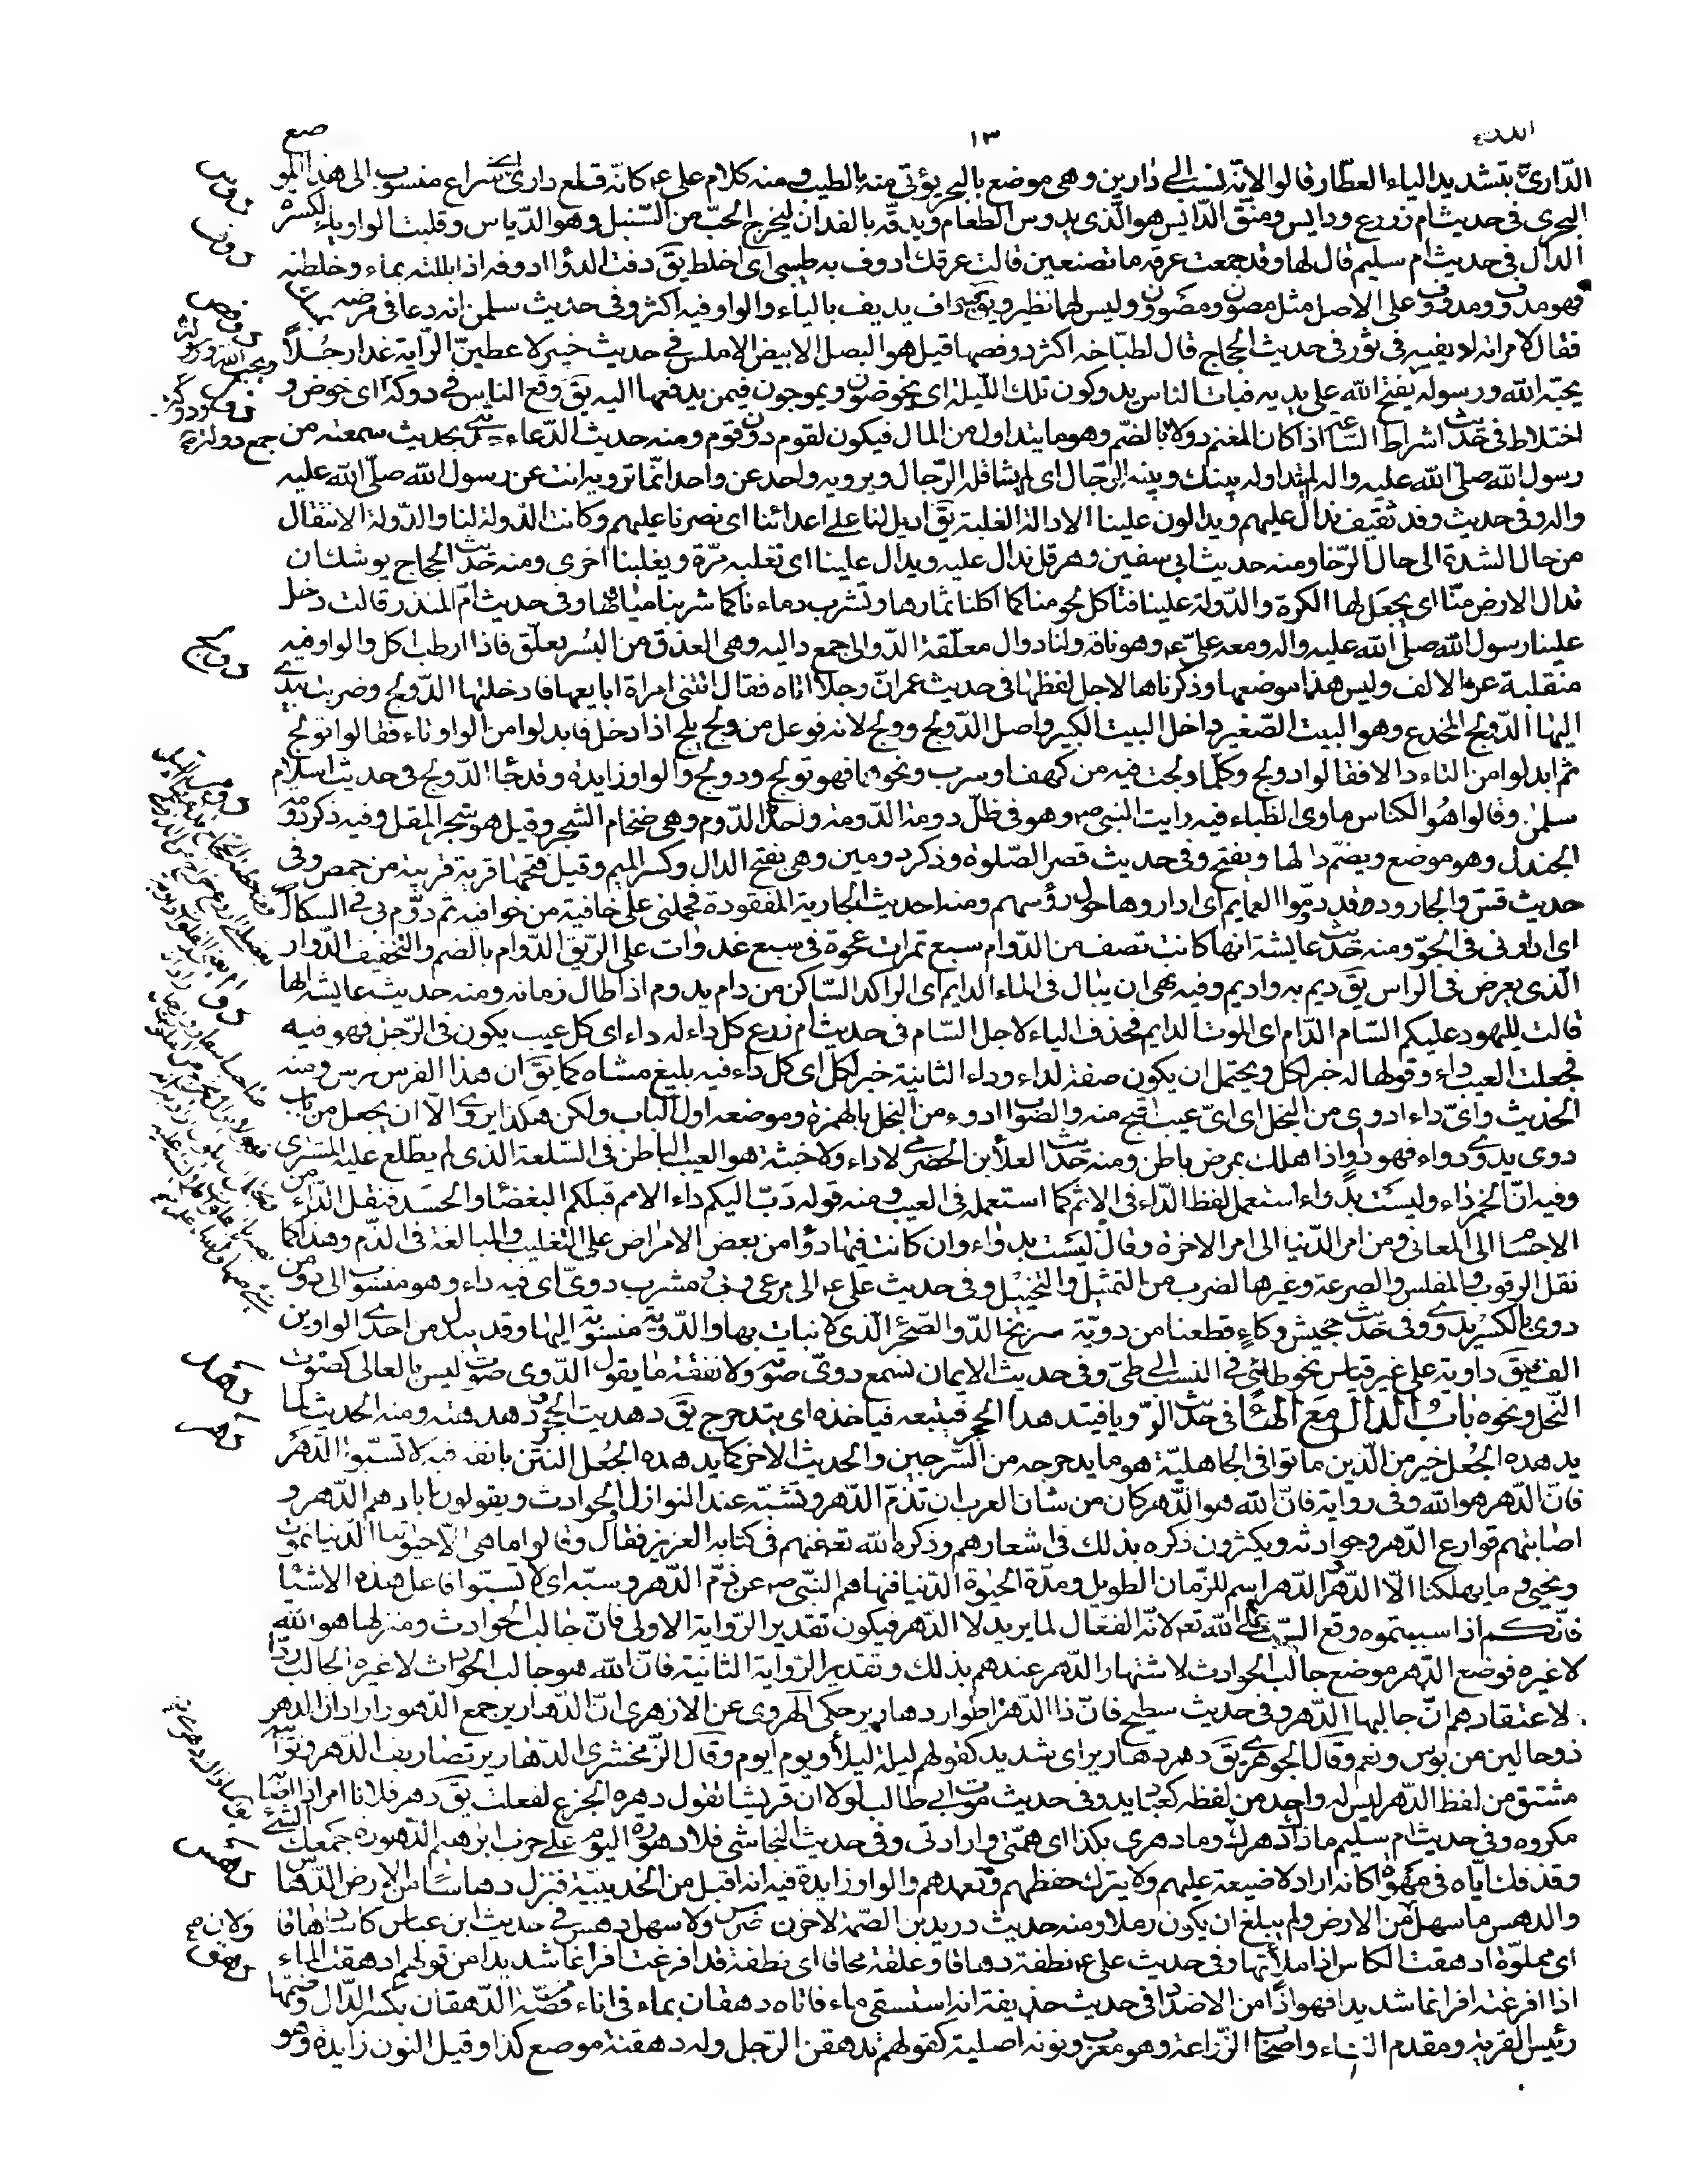 ١٣
الدّاريّ بتشديد الياء العطّار قالوا لانّه نسب الى دارين وهى موضع بالبحر يؤتى منه بالطيب ومنه كلام على ع كانّه قلع دارىّ اى شراع منسوب الى هذا المو
ضع
البحرى فى حديث ام زرع ودايس ومنقّ الدّايس هو الّذى يدوس الطعام ويدقّه بالفدان ليخرج الحبّ من السّنبل وهو الدّياس وقلبت الواو ياء لكسرة
الدال فى حديث ام سليم قال لها وقد جمعت عرقه ما تصنعين قالت عرقك ادوف به طيبى اى اخلط يقَ دفت الدوا ادوفه اذا بللته بماء وخلطته
فهو مدوف ومدووف على الاصل مثل مصون ومصوون وليس لهما نظير ويجئ داف يديف بالياء والواو فيه اكثر وفى حديث سلمن انه دعا فى مرضه
فقال لامراته اديفيه فى تور فى حديث الحجاج قال لطبّاخه اكثر دوفصها قيل هو البصل الابيض الاملس فى حديث خيبر لاعطينّ الرّاية غدا رجُلاً
يحبّه الله ورسوله يفتح الله على يديه فبات الناس يدوكون تلك اللّيلة اى يخوضون ويموجون فيمن يدفعها اليه يقَ وقع الناس فى دوكة اى خوض و
اختلاط فى حديث اشراط الساعة اذا كان المغنم دولا بالضمّ وهو ما يتداول من المال فيكون لقوم دون قوم ومنه حديث الدّعاء حدثنى بحديث سمعته من
رسول الله صلّى الله عليه واله لم يتداوله بينك وبينه الرّجال اى لم يتناقله الرّجال ويرويه واحد عن واحد انّما ترويه انت عن رسول الله صلّى الله عليه
واله وفى حديث وفد ثقيف ندال عليهم ويدالون علينا الادالة الغلبة يقَ اديل لنا على اعدائنا اى نصرنا عليهم وكانت الدّولة لنا والدّولة الانتقال
من حال الشدة الى حال الرّخا ومنه حديث ابى سفين وهرقل ندال عليه ويدال علينا اى نغلبه مرّة ويغلبنا اخرى ومنه حديث الحجاج يوشك ان
تدال الارض منّا اى يجعل لها الكرة والدّولة علينا فتاكل لحومنا كما اكلنا ثمارها وتشرب دماءنا كما شربنا مياهها وفى حديث ام المنذر قالت دخل
علينا رسول الله صلّى الله عليه واله ومعه علىّ ع وهو ناقه ولنا دوال معلّقة الدّوالى جمع داليه وهى العذق من البُسر يعلّق فاذا ارطب اكل والواو فيه
منقلبة عن الالف وليس هذا موضعها وذكرناها لاجل لفظها فى حديث عمر انّ رجلا اتاه فقال اتتنى امراة ابايعها فادخلتها الدّولج وضربت بيدى
اليها الدّولج المخدع وهو البيت الصّغير داخل البيت الكبير واصل الدّولج وولج لانه فوعل من ولج يلج اذا دخل فابدلوا من الواو تاء فقالوا تولج
ثم ابدلوا من التاء دالا فقالوا دولج وكلّما ولجت فيه من كهف او سرب ونحوهما فهو تولج ودولج والواو زايدة وقد جاء الدّولج فى حديث اسلام
سلمن وقالوا هُو الكناس ماوى الظباء فيه رايت النبى ص وهو فى ظلّ دومة الدّومة واحدة الدّوم وهى ضخام الشجر وقيل هو شجر المقل وفيه ذكر دومة
الجندل وهو موضع ويضمّ دالها ويفتح وفى حديث قصر الصّلوة وذكر دومين وهى بفتح الدال وكسر الميم وقيل فتحها قرية قريبة من حمص وفى
حديث قسّ والجارود وقد دوّموا العمايم اى اداروها حول رؤسهم ومنه حديث الجارية المفقودة فحملنى على خافية من خوافيه ثم دوّم بى فى السكاك
اى ادارنى فى الجوّ ومنه حديث عايشة انها كانت تصف من الدّوام سبع تمرات عجوة فى سبع غدوات على الرّيق الدّوام بالضم والتخفيف الدّوار
الّذى يعرض فى الراس يقَ ديم به واديم وفيه نهى ان يبال فى الماء الدايم اى الراكد السّاكن من دام يدوم اذا طال زمانه ومنه حديث عايشة انها
قالت لليهود عليكم السّام الدّام اى الموت الدايم فحذف الياء لاجل السّام فى حديث ام زرع كل داء له داء اى كل عيب يكون فى الرّجل فهو فيه
فجعلت العيب داء وقولها له خبر لكل ويحتمل ان يكون صفة لداء وداء الثانية خبر لكل اى كل داء فيه بليغ متناه كما يقَ ان هذا الفرس فرس ومنه
الحديث واىّ داء ادوى من البخل اى اىّ عيب اقبح منه والصّواب ادوء من البخل بالهمزة وموضعه اول الباب ولكن هكذا يروى الّا ان يجعل من باب
دوى يدوى دواء فهو دوٍ اذا هلك بمرض باطن ومنه حديث العلا بن الحضرمى لا داء ولا خبثة هو العيب الباطن فى السّلعة الّذى لم يطّلع عليه المشترى
وفيه انّ الخمر داء وليست بدواء استعمل لفظ الدّاء فى الاثم كما استعمله فى العيب ومنه قوله دَبّ اليكم داء الامم قبلكم البغضاء والحسَد فنقل الدّاء من
الاجسام الى المعانى ومن امر الدّنيا الى امر الاخرة وقال ليسَت بدواء وان كانت فيها دواء من بعض الامراض على التغليب والمبالغة فى الذّم وهذا كما
نقل الرقوب والمفلس والصرعة وغيرها لضرب من التمثيل والتخييل وفى حديث على ع الى مرعى وبىّ ومشرب دوىّ اى فيه داء وهو منسوب الى دوٍ من
دوى بالكسر يدوى وفى حديث جهيش وكاءٍ قطعنا من دويّة سربخ الدّو الصّحراء الّذى لا نبات بها والدّويّة منسوبة اليها وقد يبدل من احدى الواوين
الف فيقَ داوية على غير قياس نحو طائىّ فى النسب الى طىّ وفى حديث الايمان نسمع دوىّ صوته ولا نفقه ما يقول الدّوى صوت ليس بالعالى كصوت
النّحل ونحوه بابُ الدال مع الهاء فى حديث الرويا فيتدهدا الحجر فيتبعه فياخذه اى يتدحرج يقَ دهديت الحجر ودهدهته ومنه الحديث لما
يدهده الجُعل خير من الّذين ماتوا فى الجاهليّة هو ما يدحرجه من السّرجين والحديث الاخر كما يدهده الجُعل النتن بانفه فيه لا تسبّوا الدّهر
فانّ الدّهر هو الله وفى رواية فانّ الله هو الدّهر كان من شان العرب ان تذمّ الدّهر وتسبّه عند النوازل والحوادث ويقولون ابادهم الدّهر و
اصابتهم قوارع الدّهر وحوادثه ويكثرون ذكره بذلك فى اشعارهم وذكر الله تع عنهم فى كتابه العزيز فقال وقالوا ما هى الّا حيوتنا الدّنيا نموت
ونحيى وما يهلكنا الّا الدّهر والدّهر اسم للزّمان الطويل ومدّة الحيوة الدّنيا فنهاهم النّبى ص عن ذمّ الدّهر وسبّه اى لا تسبّوا فاعل هذه الاشياء
فانّكم اذا سببتموه وقع السّب على الله تع لانّه الفعّال لما يريد لا الدّهر فيكون تقدير الرّواية الاولى فانّ جالب الحوادث ومنزلها هو الله
لا غيره فوضع الدّهر موضع جالب الحوادث لاشتهار الدّهر عندهم بذلك وتقدير الرّواية الثانية فانّ الله هو جالب الحوادث لا غيره الجالب ردّا
لاعتقادهم انّ جالبها الدّهر وفى حديث سطيح فانّ ذا الدّهر اطوار دهارير حكى الهروى عن الازهرى انّ الدّهارير جمع الدّهور اراد ان الدهر
ذو حالين من بؤس ونعم وقال الجوهرى يقَ دهر دهارير اى شديد كقولهم ليلة ليلاء ويوم ايوم وقال الزّمخشرى الدّهارير تصاريف الدّهر ونوائبه
مشتق من لفظ الدّهر ليس له واحد من لفظه كعبابيد وفى حديث موت ابى طالب لولا ان قريشا تقول دهره الجزع لفعلت يقَ دهر فلانا امر اذا اصابه
مكروه وفى حديث ام سليم ماذاك دهرك وما دهرى بكذا اى همّتى وارادتى وفى حديث النجاشى فلا دهورة اليوم على حزب ابرهيم الدّهورة جمعك الشئ
وقذفك ايّاه فى مهواة كانه اراد لا ضيعة عليهم ولا يترك حفظهم وتعهدهم والواو زايدة فيه انه اقبل من الحديبية فنزل دهاسا من الارض الدّهاس
والدهس ما سهل من الارض ولم يبلغ ان يكون رملا ومنه حديث دريد بن الصّمة لا حزن ضرس ولا سهل دهس فى حديث ابن عباس كاسا دهاقا
اى مملوّة ادهقت الكاس اذا ملأتها وفى حديث على ع نطفة دهاقا وعلقة محاقا اى نطفة قد افرغت افراغا شديدا من قولهم ادهقت الماء
اذا افرغته افراغا شديدا فهو اذًا من الاضداد فى حديث حذيفة انه استسقى ماء فاتاه دهقان بماء فى اناء من فضّة الدّهقان بكسر الدّال وضمّها
رئيس القرية ومقدم التناء واصحاب الزّراعة وهو معرّب ونونه اصلية كقولهم تدهقن الرّجل وله دهقنة موضع كذا وقيل النون زايدة وهو